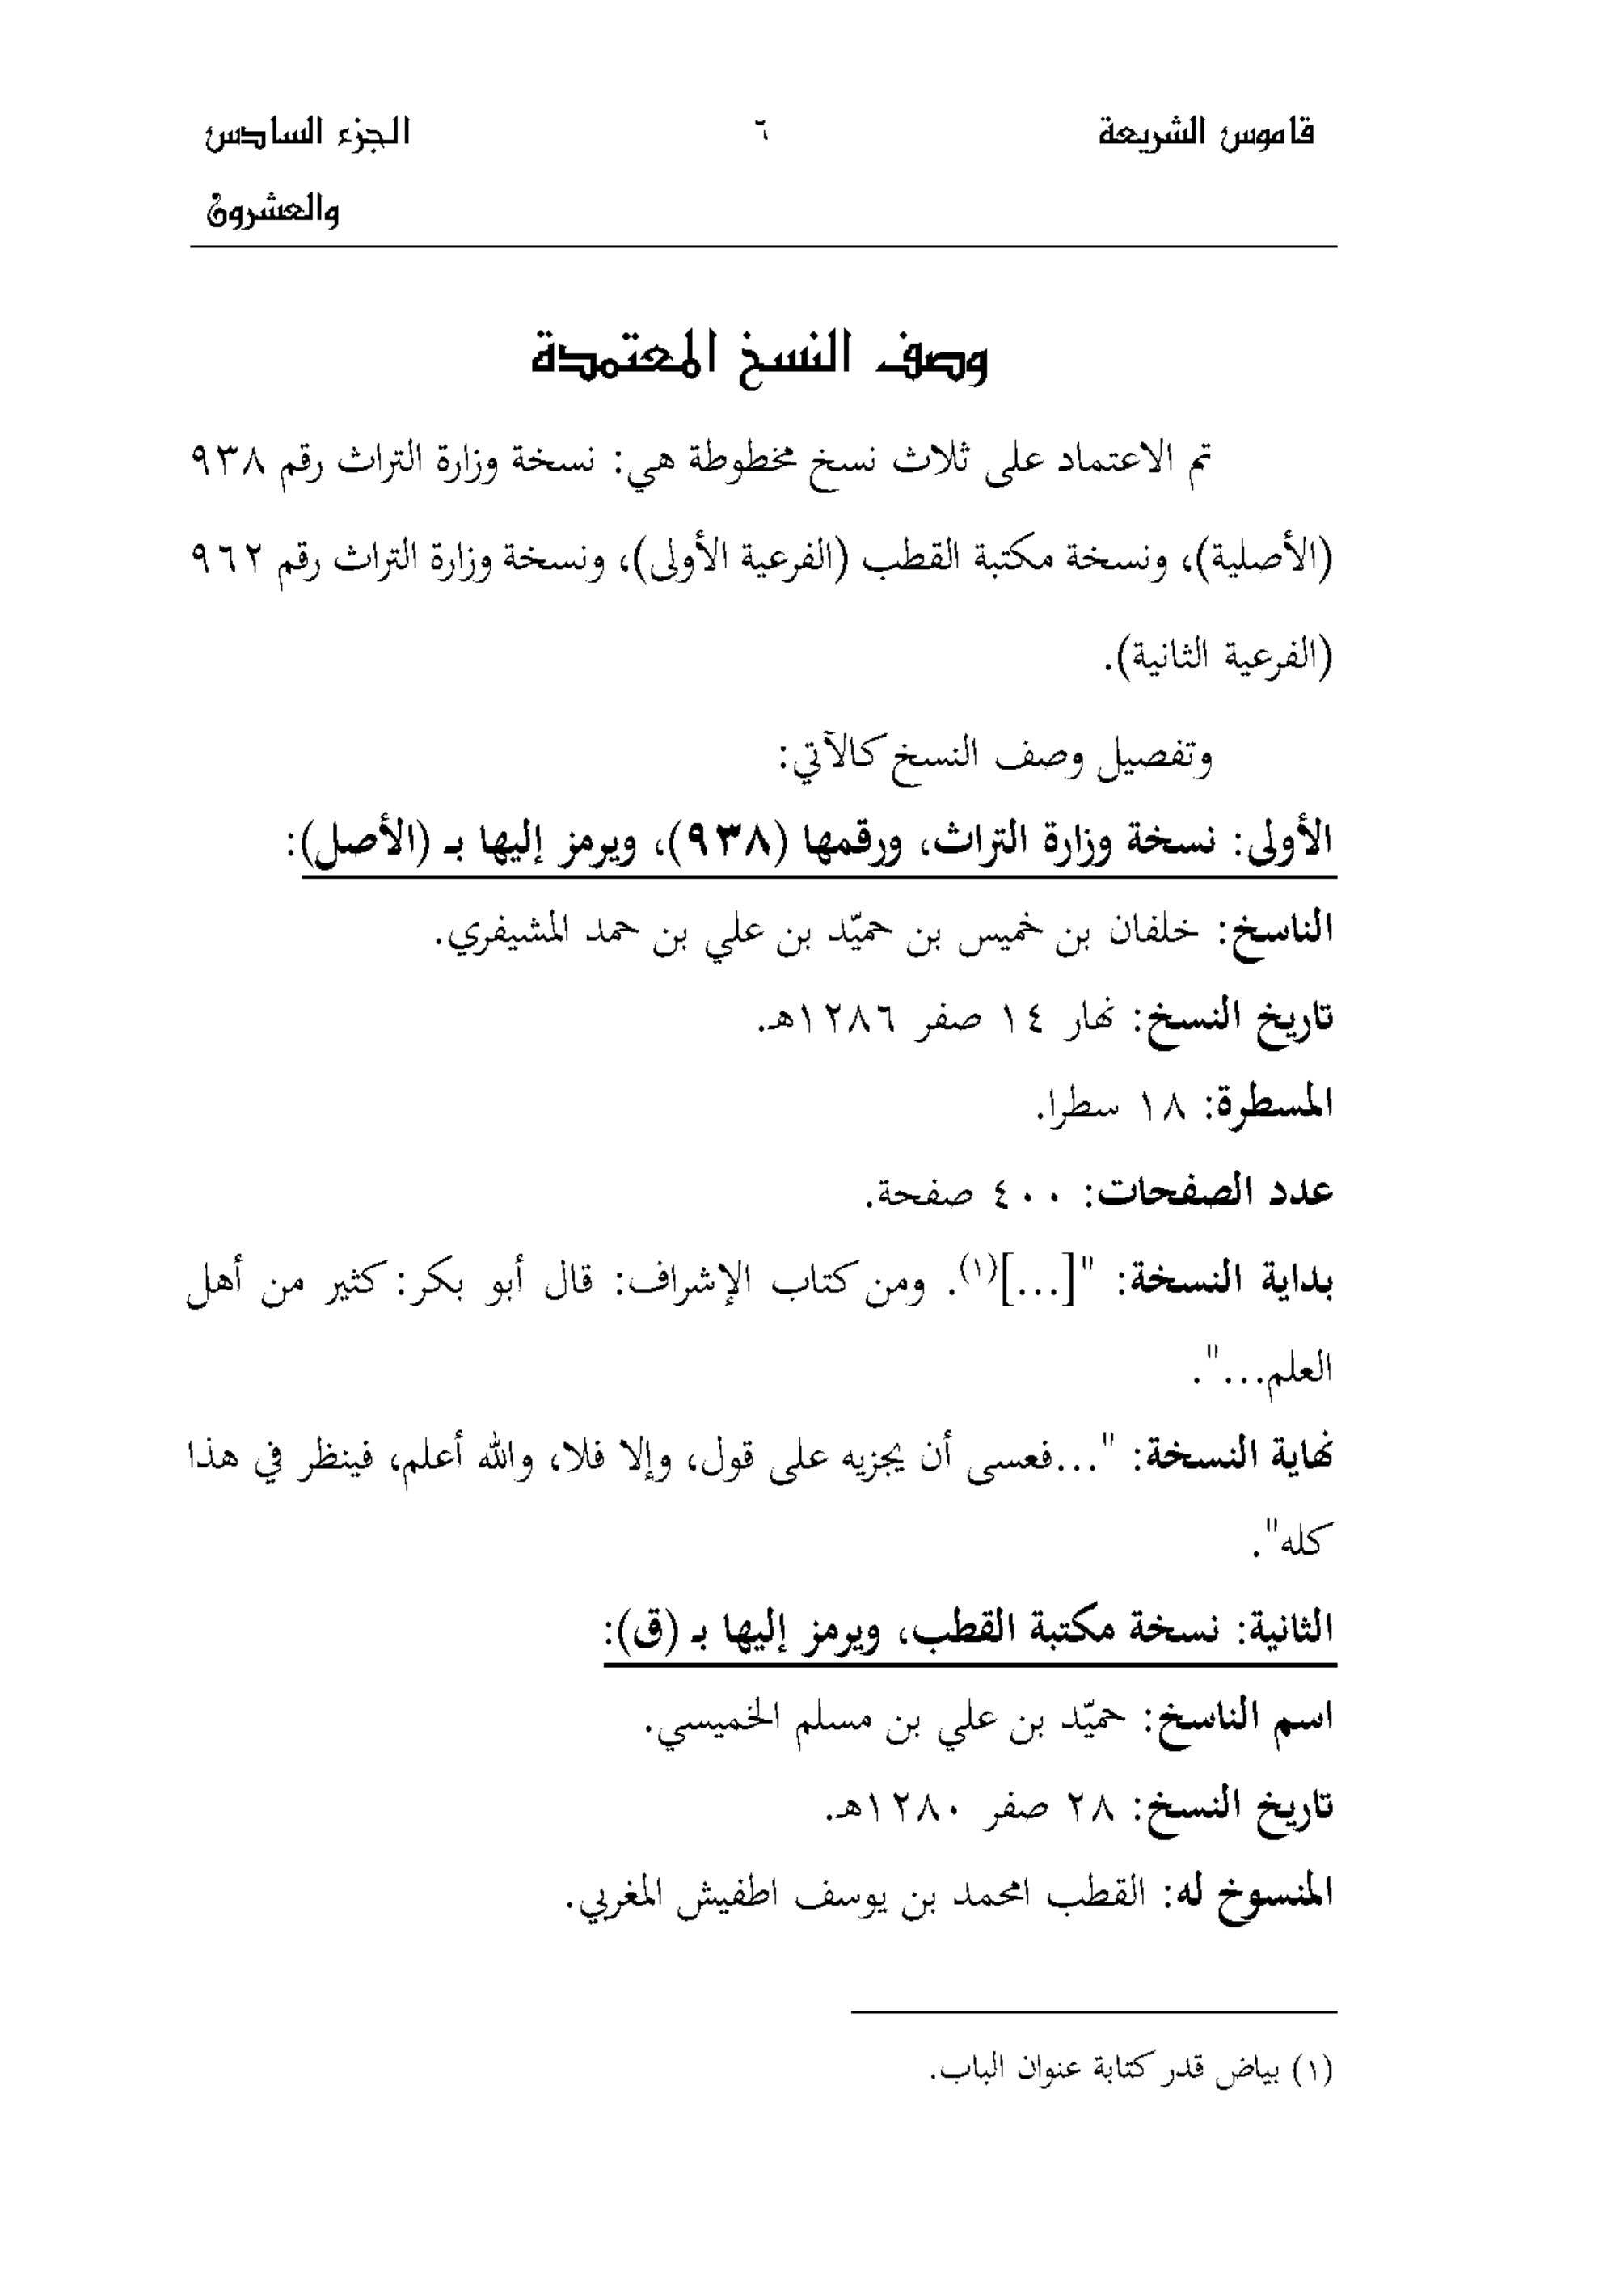 قاموس الشريعة ٦ الجزء السادس
والعشرون
وصف النسخ المعتمدة
تم الاعتماد على ثلاث نسخ مخطوطة هي: نسخة وزارة التراث رقم ٩٣٨
(الأصلية)، ونسخة مكتبة القطب (الفرعية الأولى)، ونسخة وزارة التراث رقم ٩٦٢
(الفرعية الثانية).
وتفصيل وصف النسخ كالآتي:
الأولى: نسخة وزارة التراث، ورقمها (٩٣٨)، ويرمز إليها بـ (الأصل):
الناسخ: خلفان بن خميس بن حميّد بن علي بن حمد المشيفري.
تاريخ النسخ: نهار ١٤ صفر ١٢٨٦هـ.
المسطرة: ١٨ سطرا.
عدد الصفحات: ٤٠٠ صفحة.
بداية النسخة: "[...](١). ومن كتاب الإشراف: قال أبو بكر: كثير من أهل
العلم...".
نهاية النسخة: "...فعسى أن يجزيه على قول، وإلا فلا، والله أعلم، فينظر في هذا
كله".
الثانية: نسخة مكتبة القطب، ويرمز إليها بـ (ق):
اسم الناسخ: حميّد بن علي بن مسلم الخميسي.
تاريخ النسخ: ٢٨ صفر ١٢٨٠هـ.
المنسوخ له: القطب امحمد بن يوسف اطفيش المغربي.
(١) بياض قدر كتابة عنوان الباب.